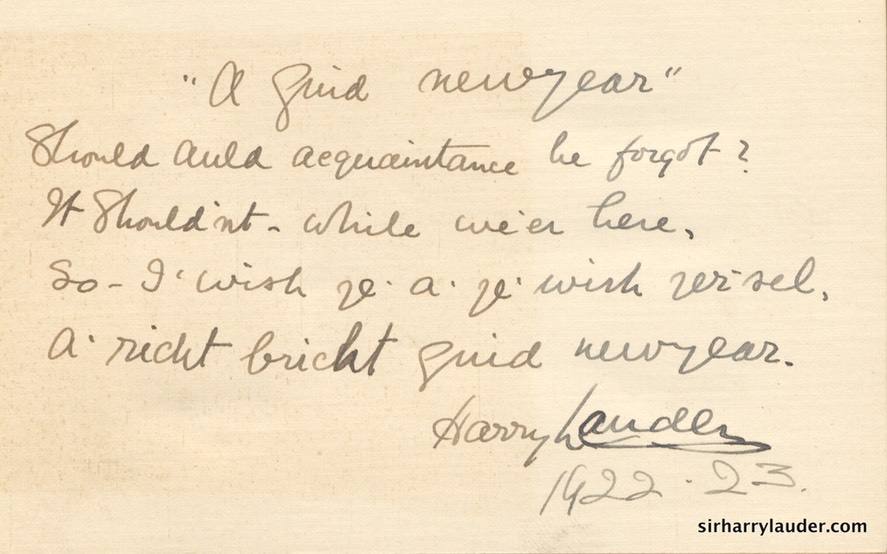 "A guid newyear"
Should Auld acquaintance be forgot?
It Should'nt - while we'er here,
So - I' wish ye' a' ye' wish yer'sel,
A' richt bricht guid newyear.
Harry Lauder
1922.23.
sirharrylauder.com